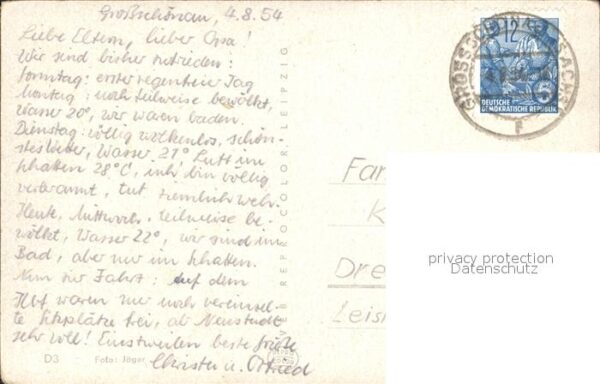 Großschönau, 4.8.54
Liebe Eltern, lieber Opa!
Wir sind bisher zufrieden:
Sonntag: erster regenfreier Tag
Montag: noch teilweise bewölkt,
Wasser 20°, wir waren baden.
Dienstag: völlig wolkenlos, schön-
stes Wetter, Wasser 21° Luft im
Schatten 28°C, ich bin völlig
verbrannt, tut ziemlich weh.
Heute, Mittwoch, teilweise be-
wölkt, Wasser 22°, wir sind im
Bad, aber nur im Schatten.
Nun zur Fahrt: Auf dem
Hbf waren nur noch vereinzel-
te Sitzplätze frei, ab Neustadt
sehr voll! Einstweilen beste Grüße
u.
D3 Foto: Jäger
VEB REPROCOLOR LEIPZIG
12
DEUTSCHE
DEMOKRATISCHE REPUBLIK
Fa
K
Dre
Leis
privacy protection
Datenschutz